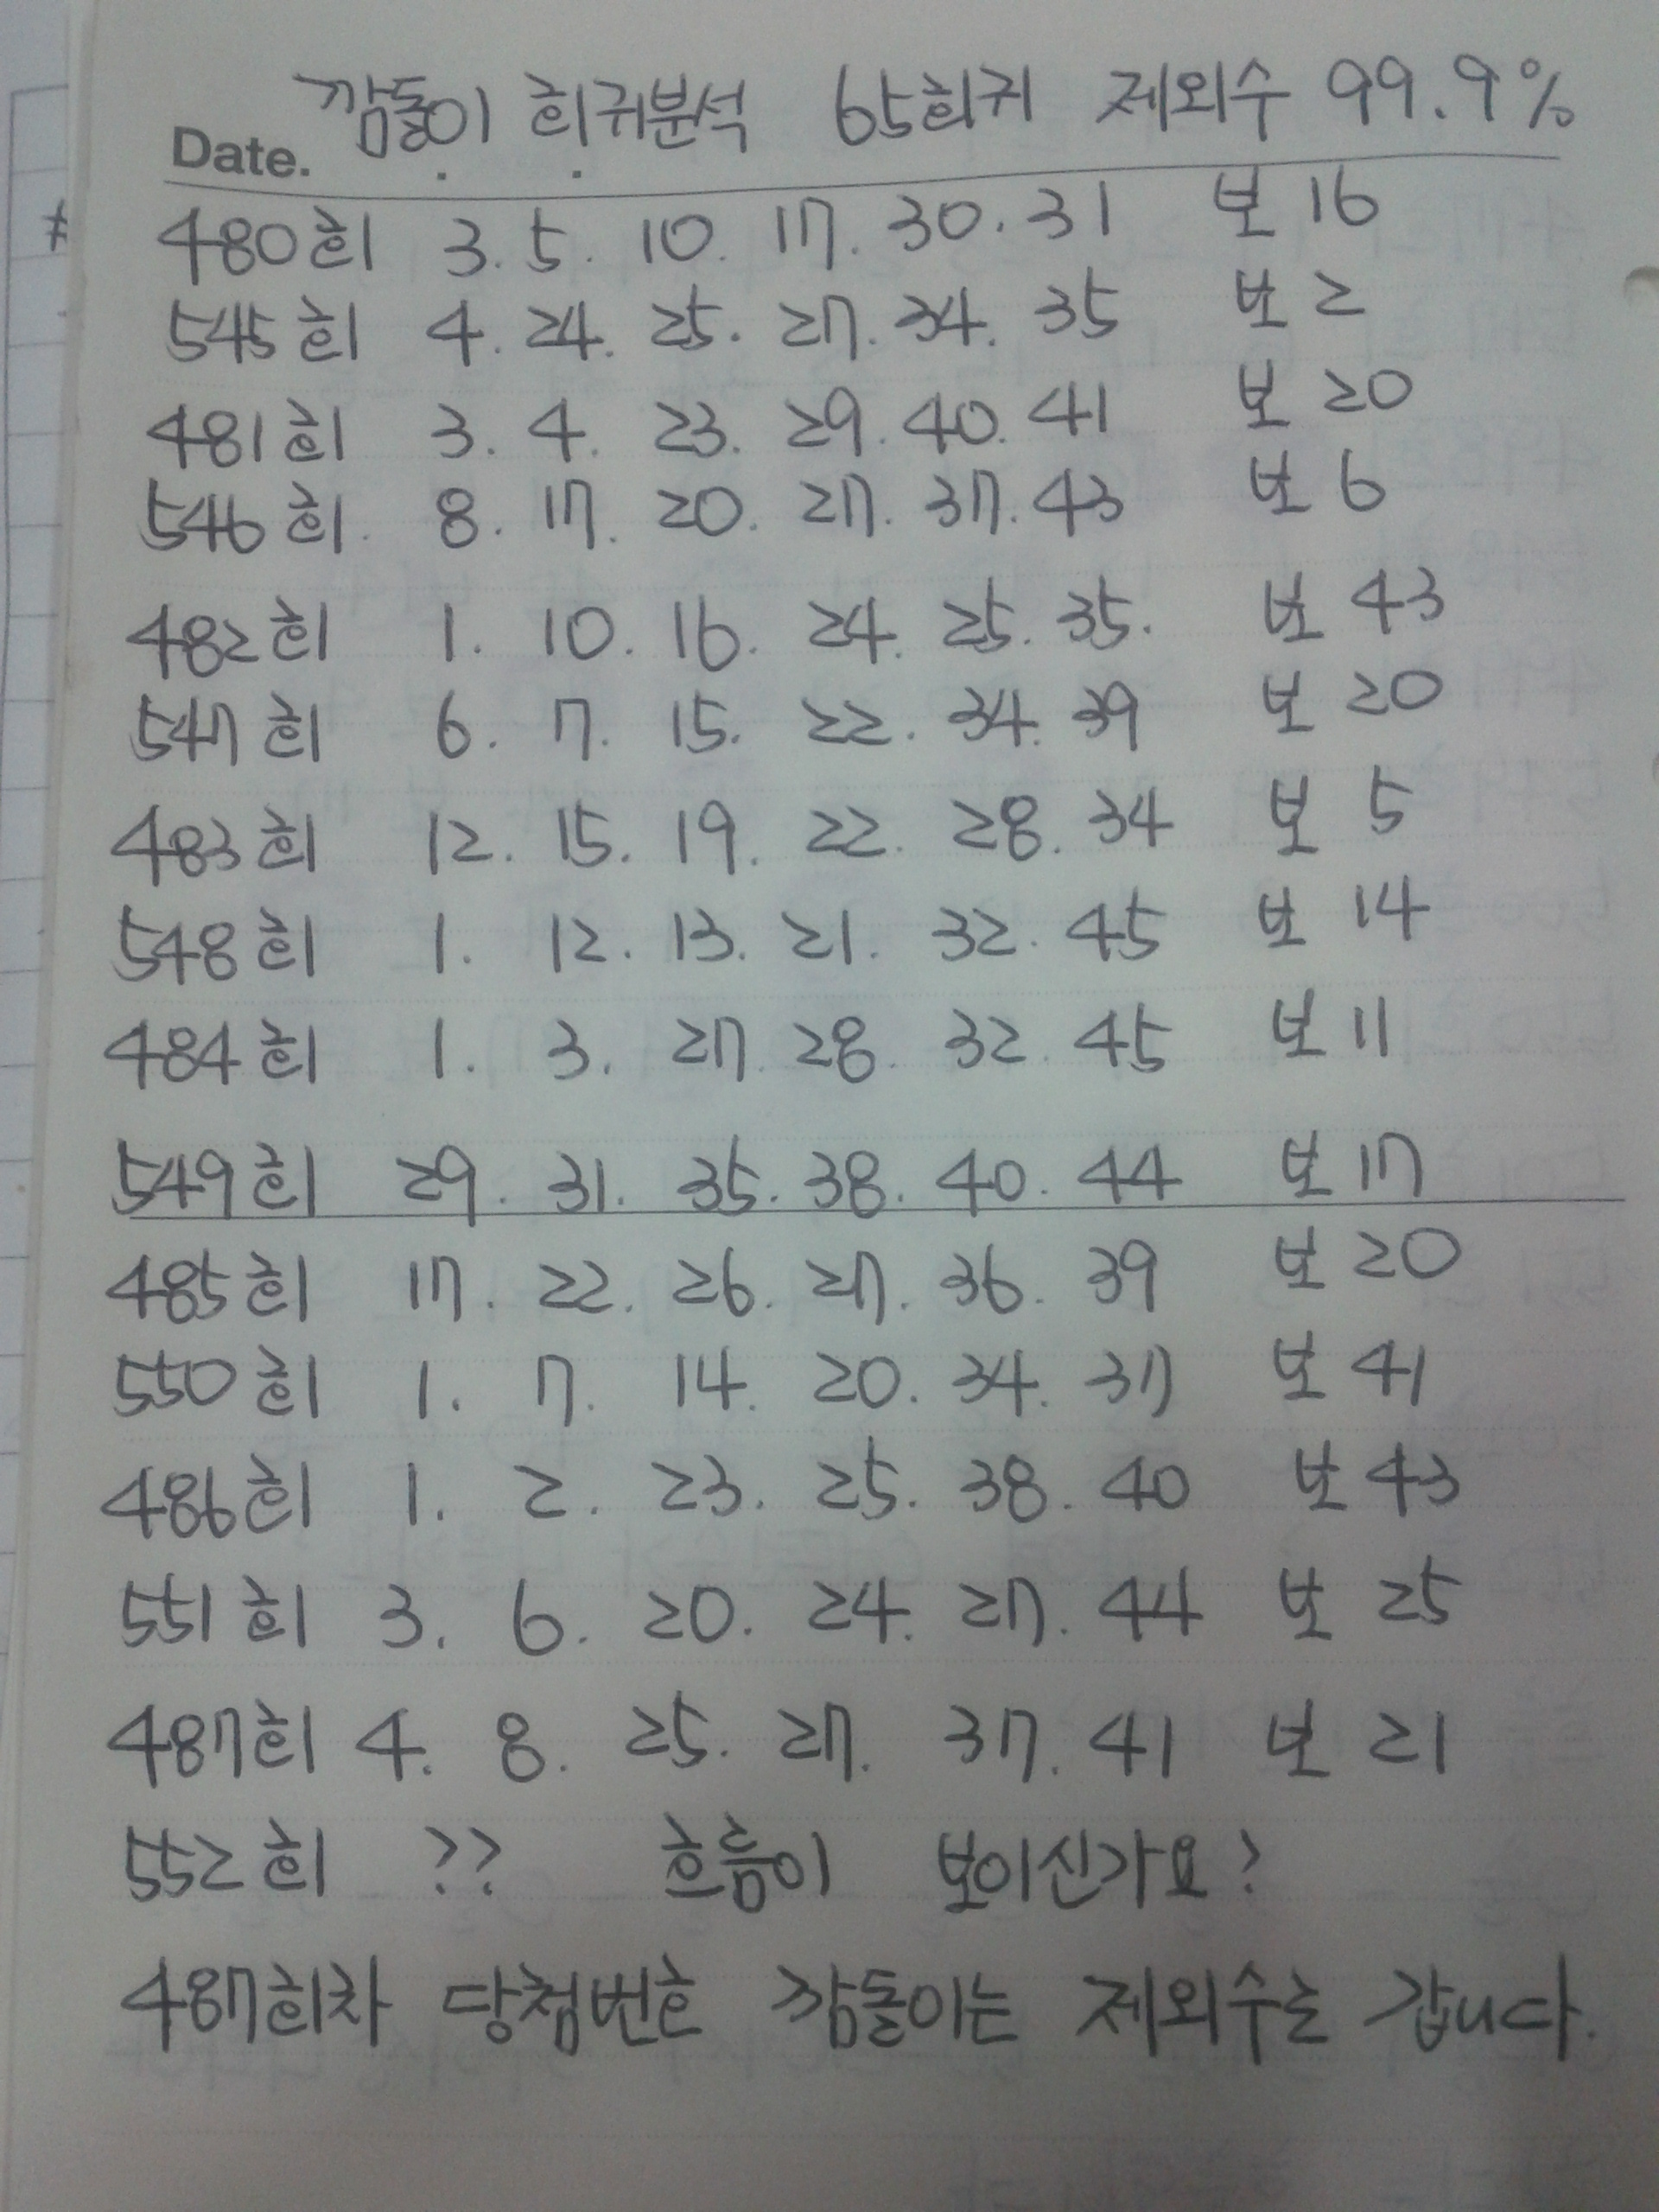 깜돌이 회귀분석 65회귀 제외수 99.9%
Date.
480회 3. 5. 10. 17. 30. 31 보 16
545회 4. 24. 25. 27. 34. 35 보 2
481회 3. 4. 23. 29. 40. 41 보 20
546회. 8. 17. 20. 27. 37. 43 보 6
482회 1. 10. 16. 24. 25. 35. 보 43
547회 6. 7. 15. 22. 34. 39 보 20
483회 12. 15. 19. 22. 28. 34 보 5
548회 1. 12. 13. 21. 32. 45 보 14
484회 1. 3. 27. 28. 32. 45 보 11
549회 29. 31. 35. 38. 40. 44 보 17
485회 17. 22. 26. 27. 36. 39 보 20
550회 1. 7. 14. 20. 34. 37 보 41
486회 1. 2. 23. 25. 38. 40 보 43
551회 3. 6. 20. 24. 27. 44 보 25
487회 4. 8. 25. 27. 37. 41 보 21
552회 ?? 흐름이 보이신가요?
487회차 당첨번호 깜돌이는 제외수로 갑니다.